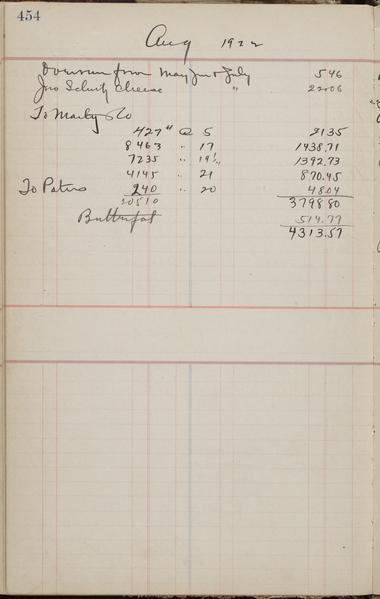 454
Aug 1922
Overrun from May Jun & July 5 46
Jno Schutz Cheese " 220 06
To Marty & Co
427# @ 5 21 35
8463 " 17 1438.71
7235 " 19¼ 1392.73
4145 " 21 870.45
To Paters 240 " 20 48 04
20510 3798 80
Butterfat 514.77
4313.57